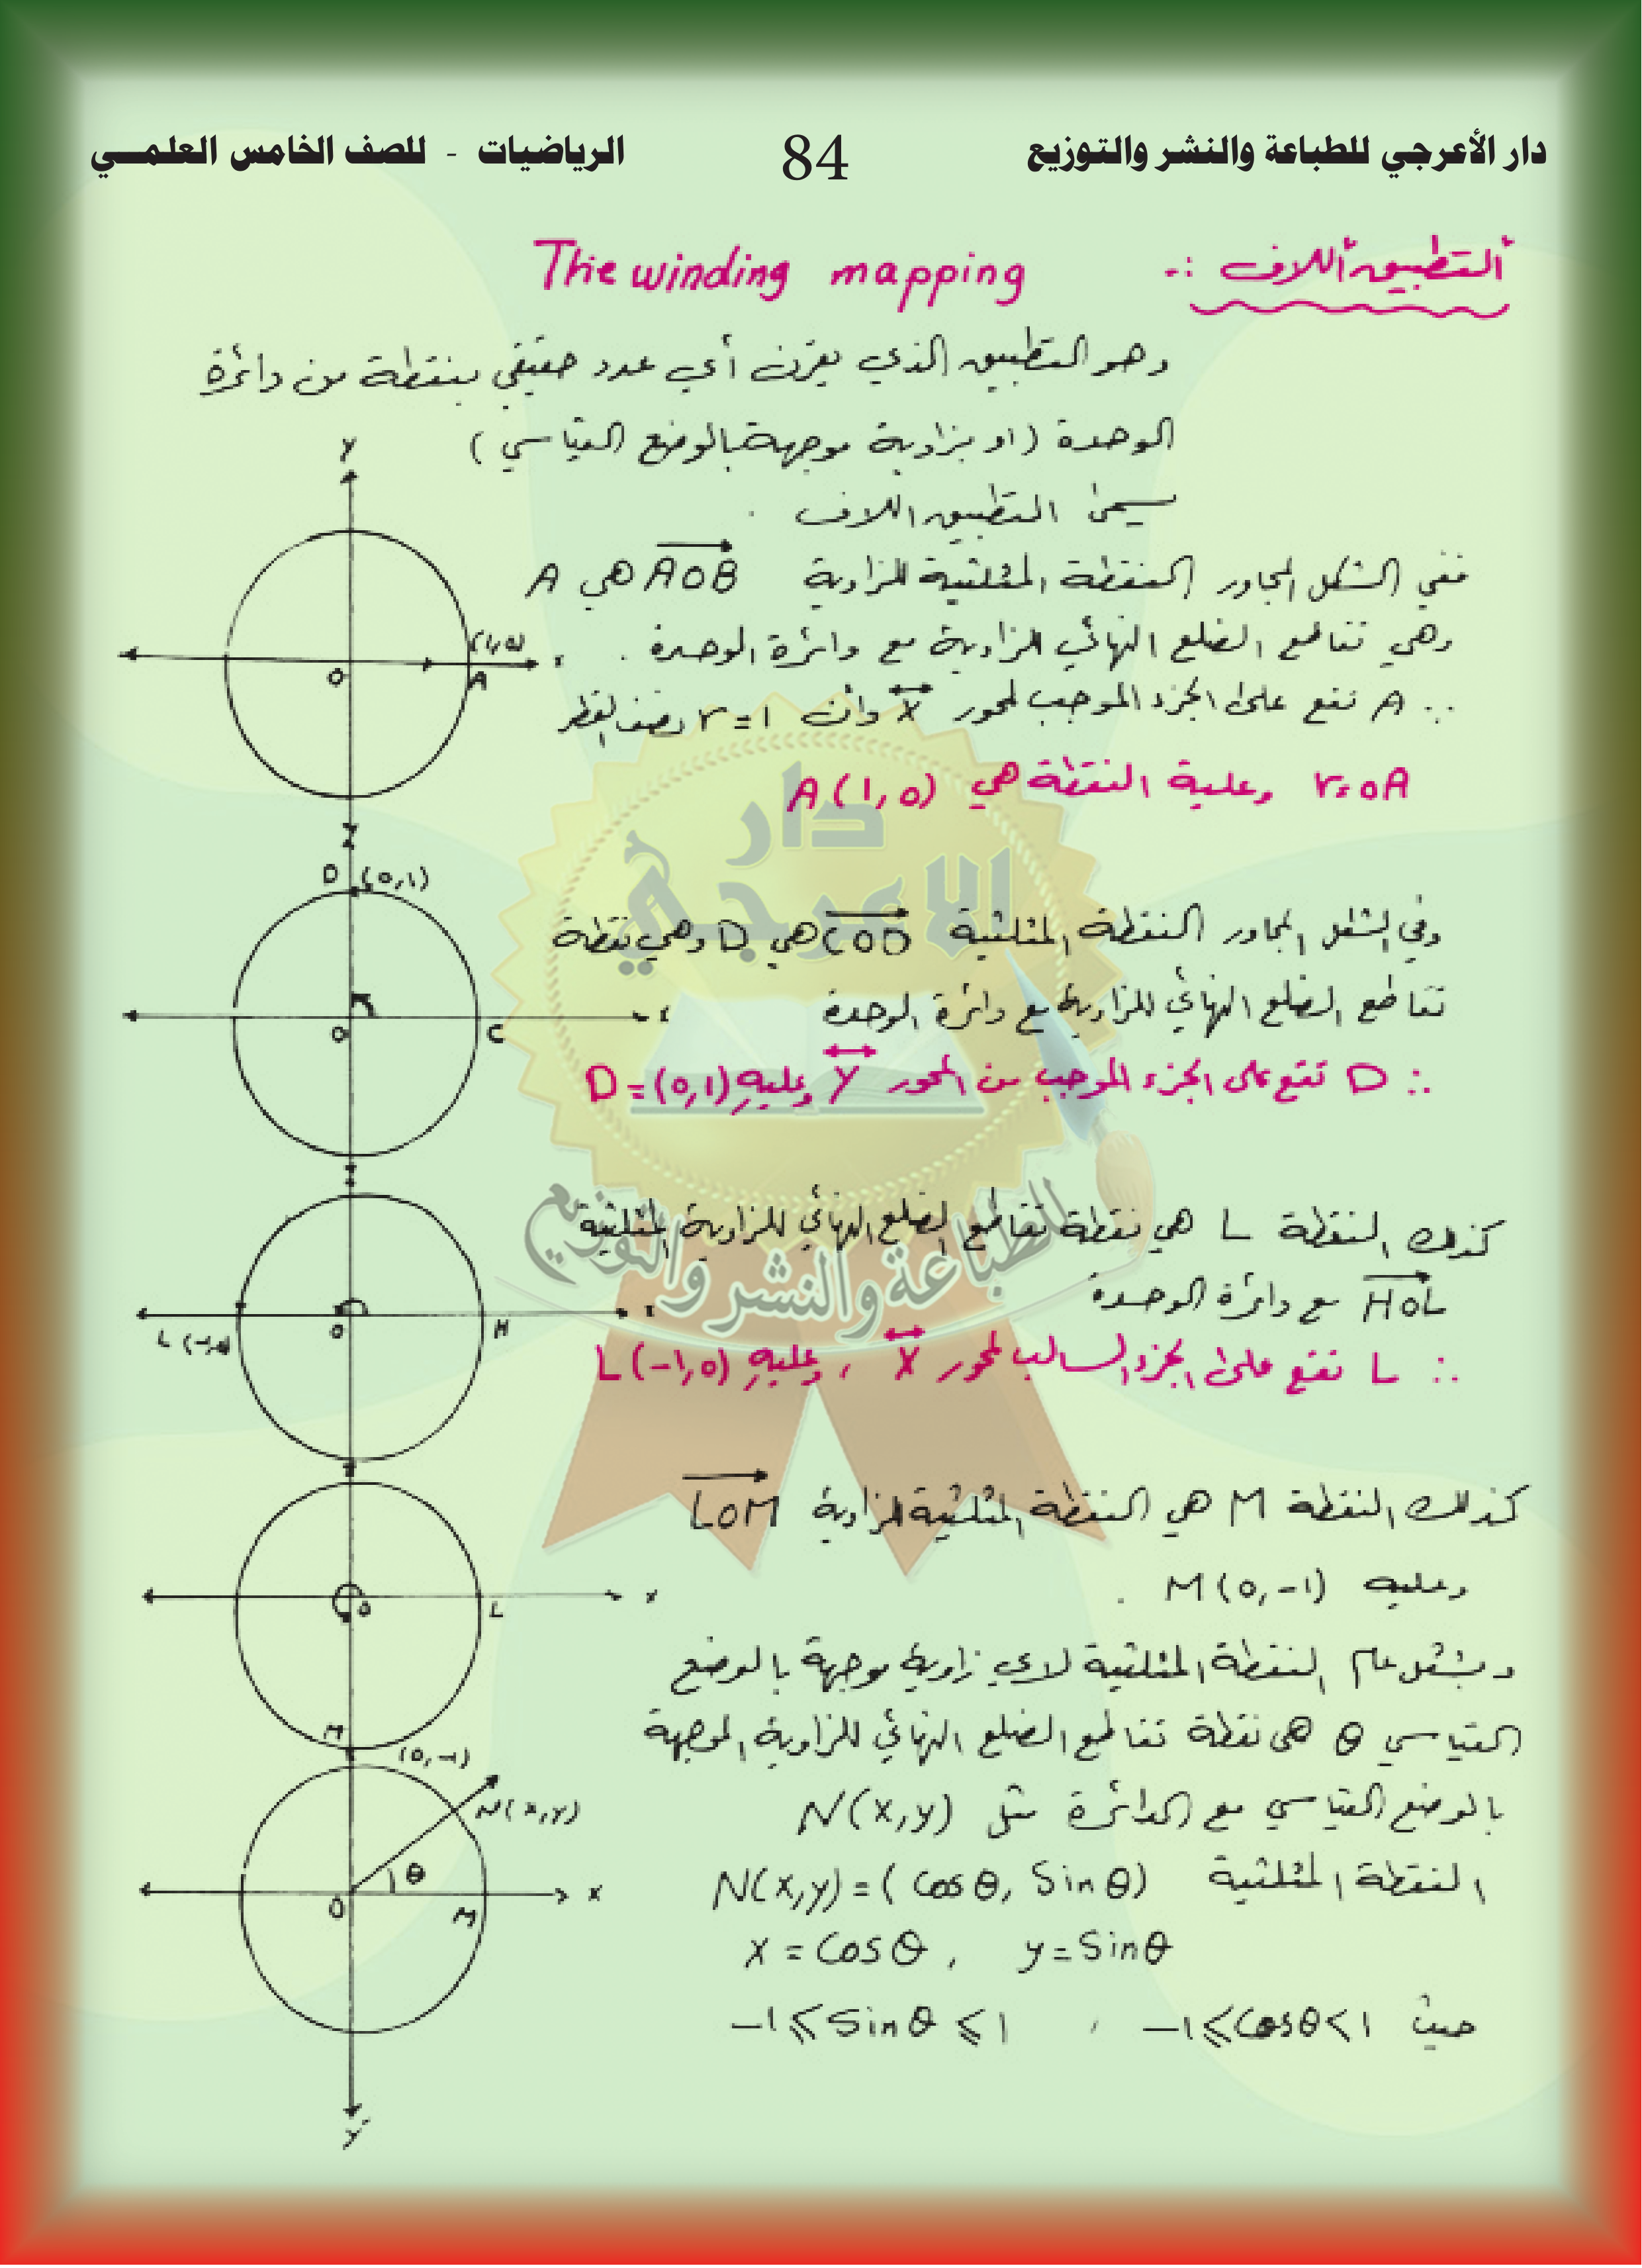 دار الأعرجي للطباعة والنشر والتوزيع 84 الرياضيات - للصف الخامس العلمـــي
التطبيق اللاف :- The winding mapping
وهو التطبيق الذي يقرن أي عدد حقيقي بنقطة من دائرة
الوحدة (او بزاوية موجهة بالوضع القياسي)
يسمى التطبيق اللاف .
ففي الشكل المجاور النقطة المثلثية للزاوية AOB هي A
وهي تقاطع الضلع النهائي للزاوية مع دائرة الوحدة .
∴ A تقع على الجزء الموجب لمحور X وأن r=1 نصف القطر
r=OA وعلية النقطة هي A(1,0)
وفي الشكل المجاور النقطة المثلثية COD هي D وهي نقطة
تقاطع الضلع النهائي للزاوية مع دائرة الوحدة
∴ D تقع على الجزء الموجب من المحور Y وعليهِ D=(0,1)
كذلك النقطة L هي نقطة تقاطع الضلع النهائي للزاوية المثلثية
HOL مع دائرة الوحدة
∴ L تقع على الجزء السالب لمحور X ، وعليهِ L(-1,0)
كذلك النقطة M هي النقطة المثلثية للزاوية LOM
وعليه M(0,-1) .
وبشكل عام النقطة المثلثية لاي زاوية موجهة بالوضع
القياسي θ هي نقطة تقاطع الضلع النهائي للزاوية الموجهة
بالوضع القياسي مع الدائرة مثل N(x,y)
النقطة المثلثية N(x,y)=(Cosθ, Sinθ)
x=Cosθ , y=Sinθ
حيث -1≤Cosθ<1 , -1≤Sinθ≤1
Y
(1,0)
O A
D (0,1)
O C
L(-1,0) O H
O L x
M
(0,-1)
N(x,y)
θ
O M x
y'
دار
الاعرجي
للطباعة والنشر والتوزيع